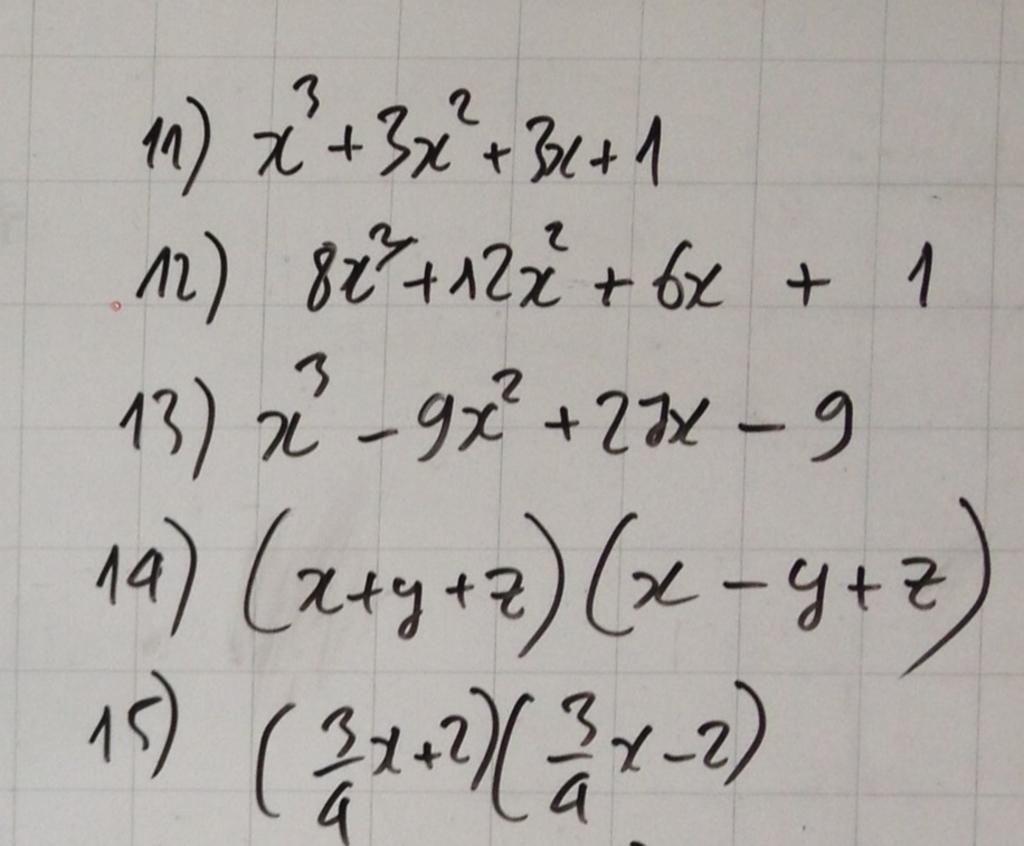 11) x³ + 3x² + 3x + 1
12) 8x³ + 12x² + 6x + 1
13) x³ - 9x² + 27x - 9
14) (x + y + z)(x - y + z)
15) (3/4 x + 2)(3/4 x - 2)